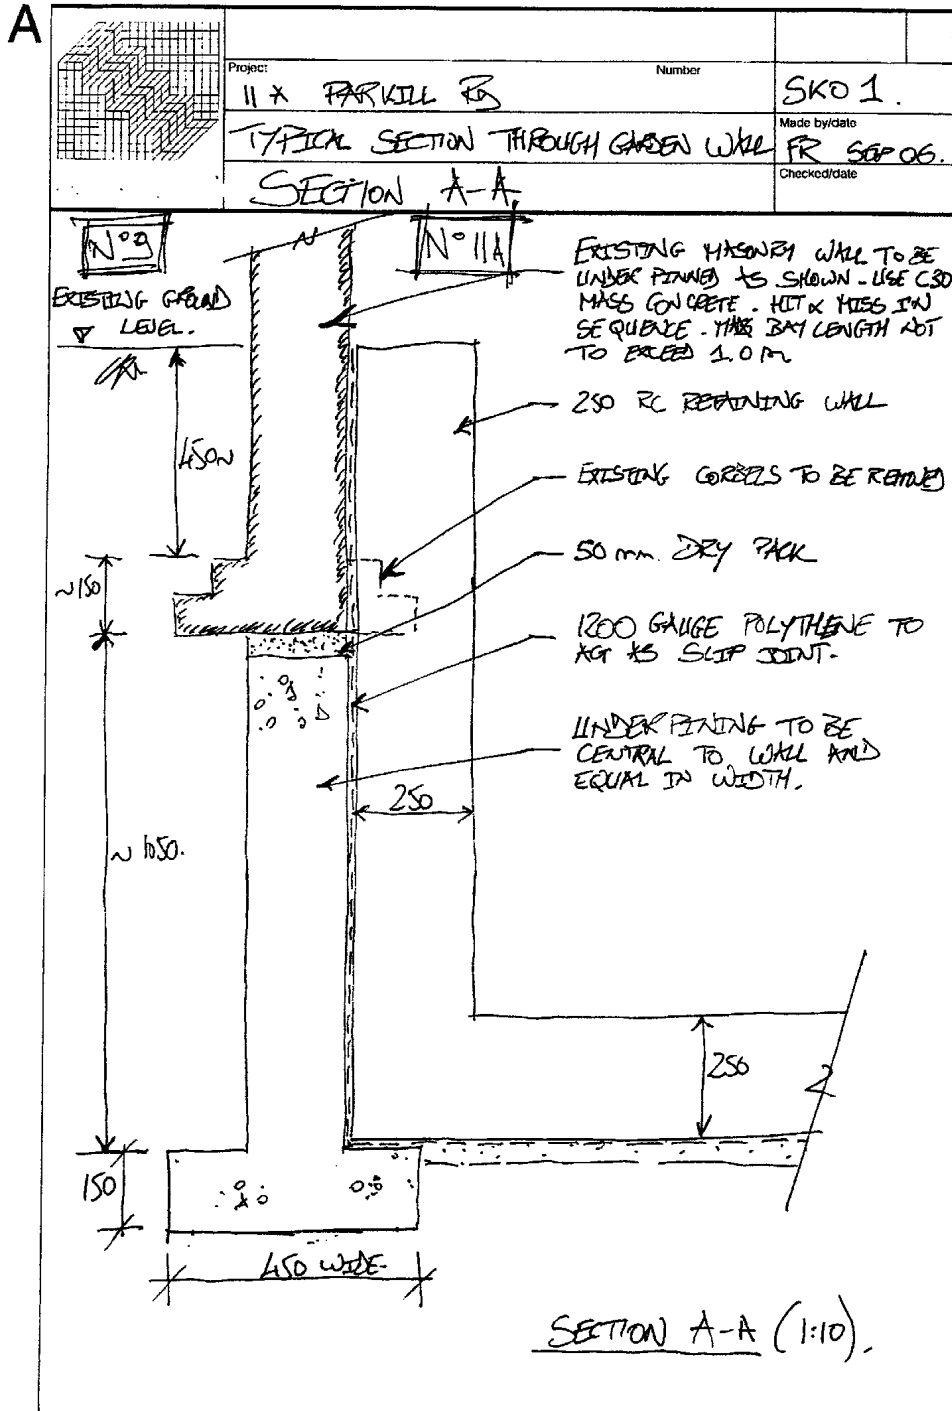 A
Project
Number
11A PARKILL RD
SK01.
TYPICAL SECTION THROUGH GARDEN WALL
Made by/date
FR SEP 06.
SECTION A-A.
Checked/date
Nº9
Nº 11A
EXISTING GROUND
LEVEL.
EXISTING MASONRY WALL TO BE
UNDER PINNED AS SHOWN - USE C30
MASS CONCRETE. HIT & MISS IN
SEQUENCE. MAX BAY LENGTH NOT
TO EXCEED 1.0m
250 RC RETAINING WALL
450~
EXISTING CORBELS TO BE REMOVED
50mm. DRY PACK
~150
1200 GAUGE POLYTHENE TO
ACT AS SLIP JOINT.
UNDERPINING TO BE
CENTRAL TO WALL AND
EQUAL IN WIDTH.
250
~1050.
250
150
450 WIDE
SECTION A-A (1:10).